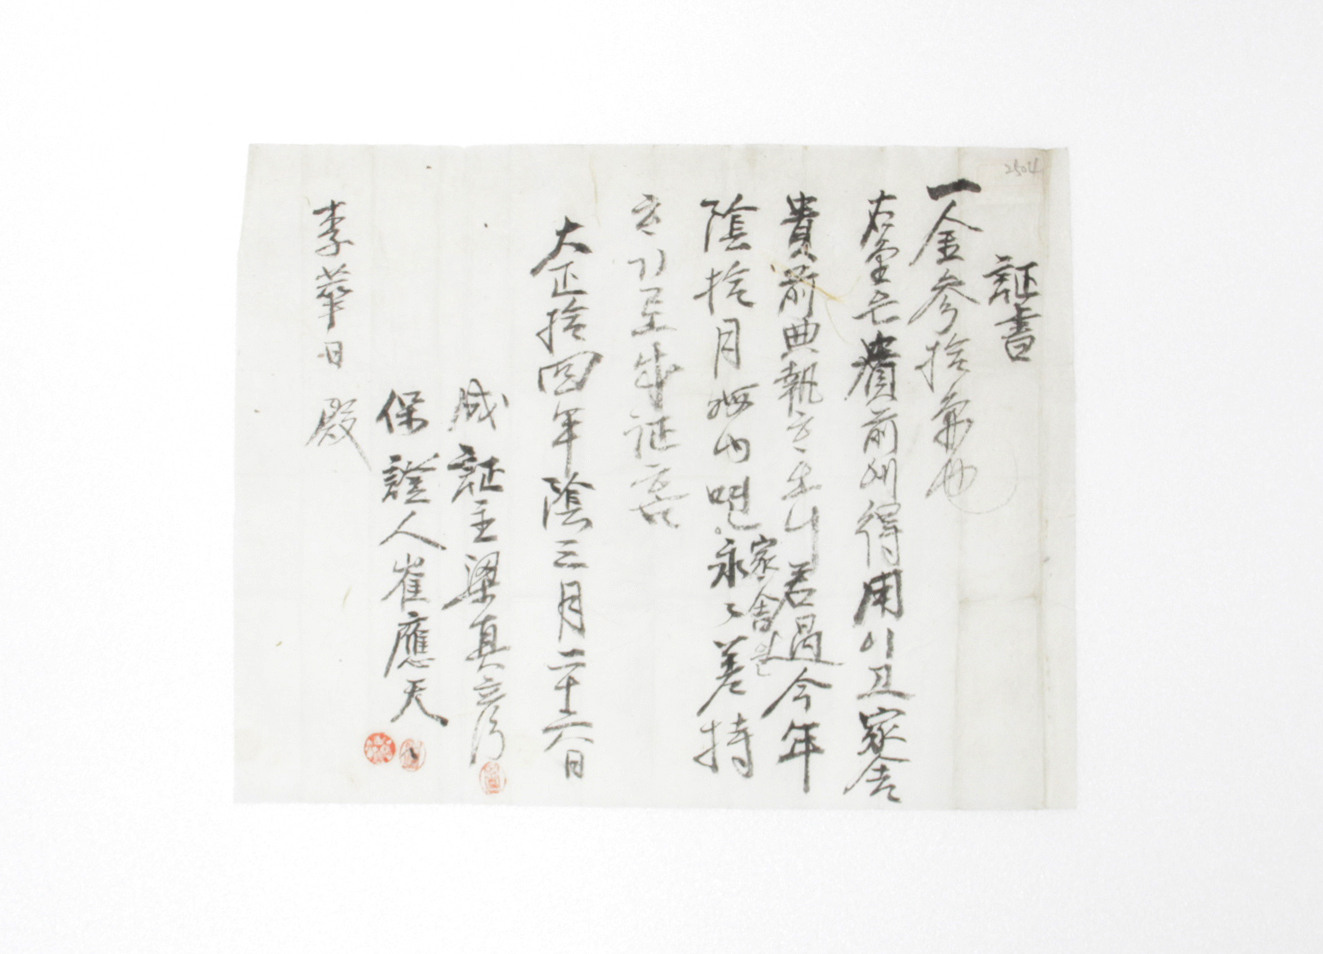 2504
証書
一金參拾原也
右金은貴前에得用이고家舍
貴前典執하오니若過今年
陰拾月晦內면家舍을永々差持
하기로成証홈
大正拾四年陰三月二十六日
成証主梁真
保證人崔應天
李華日殿